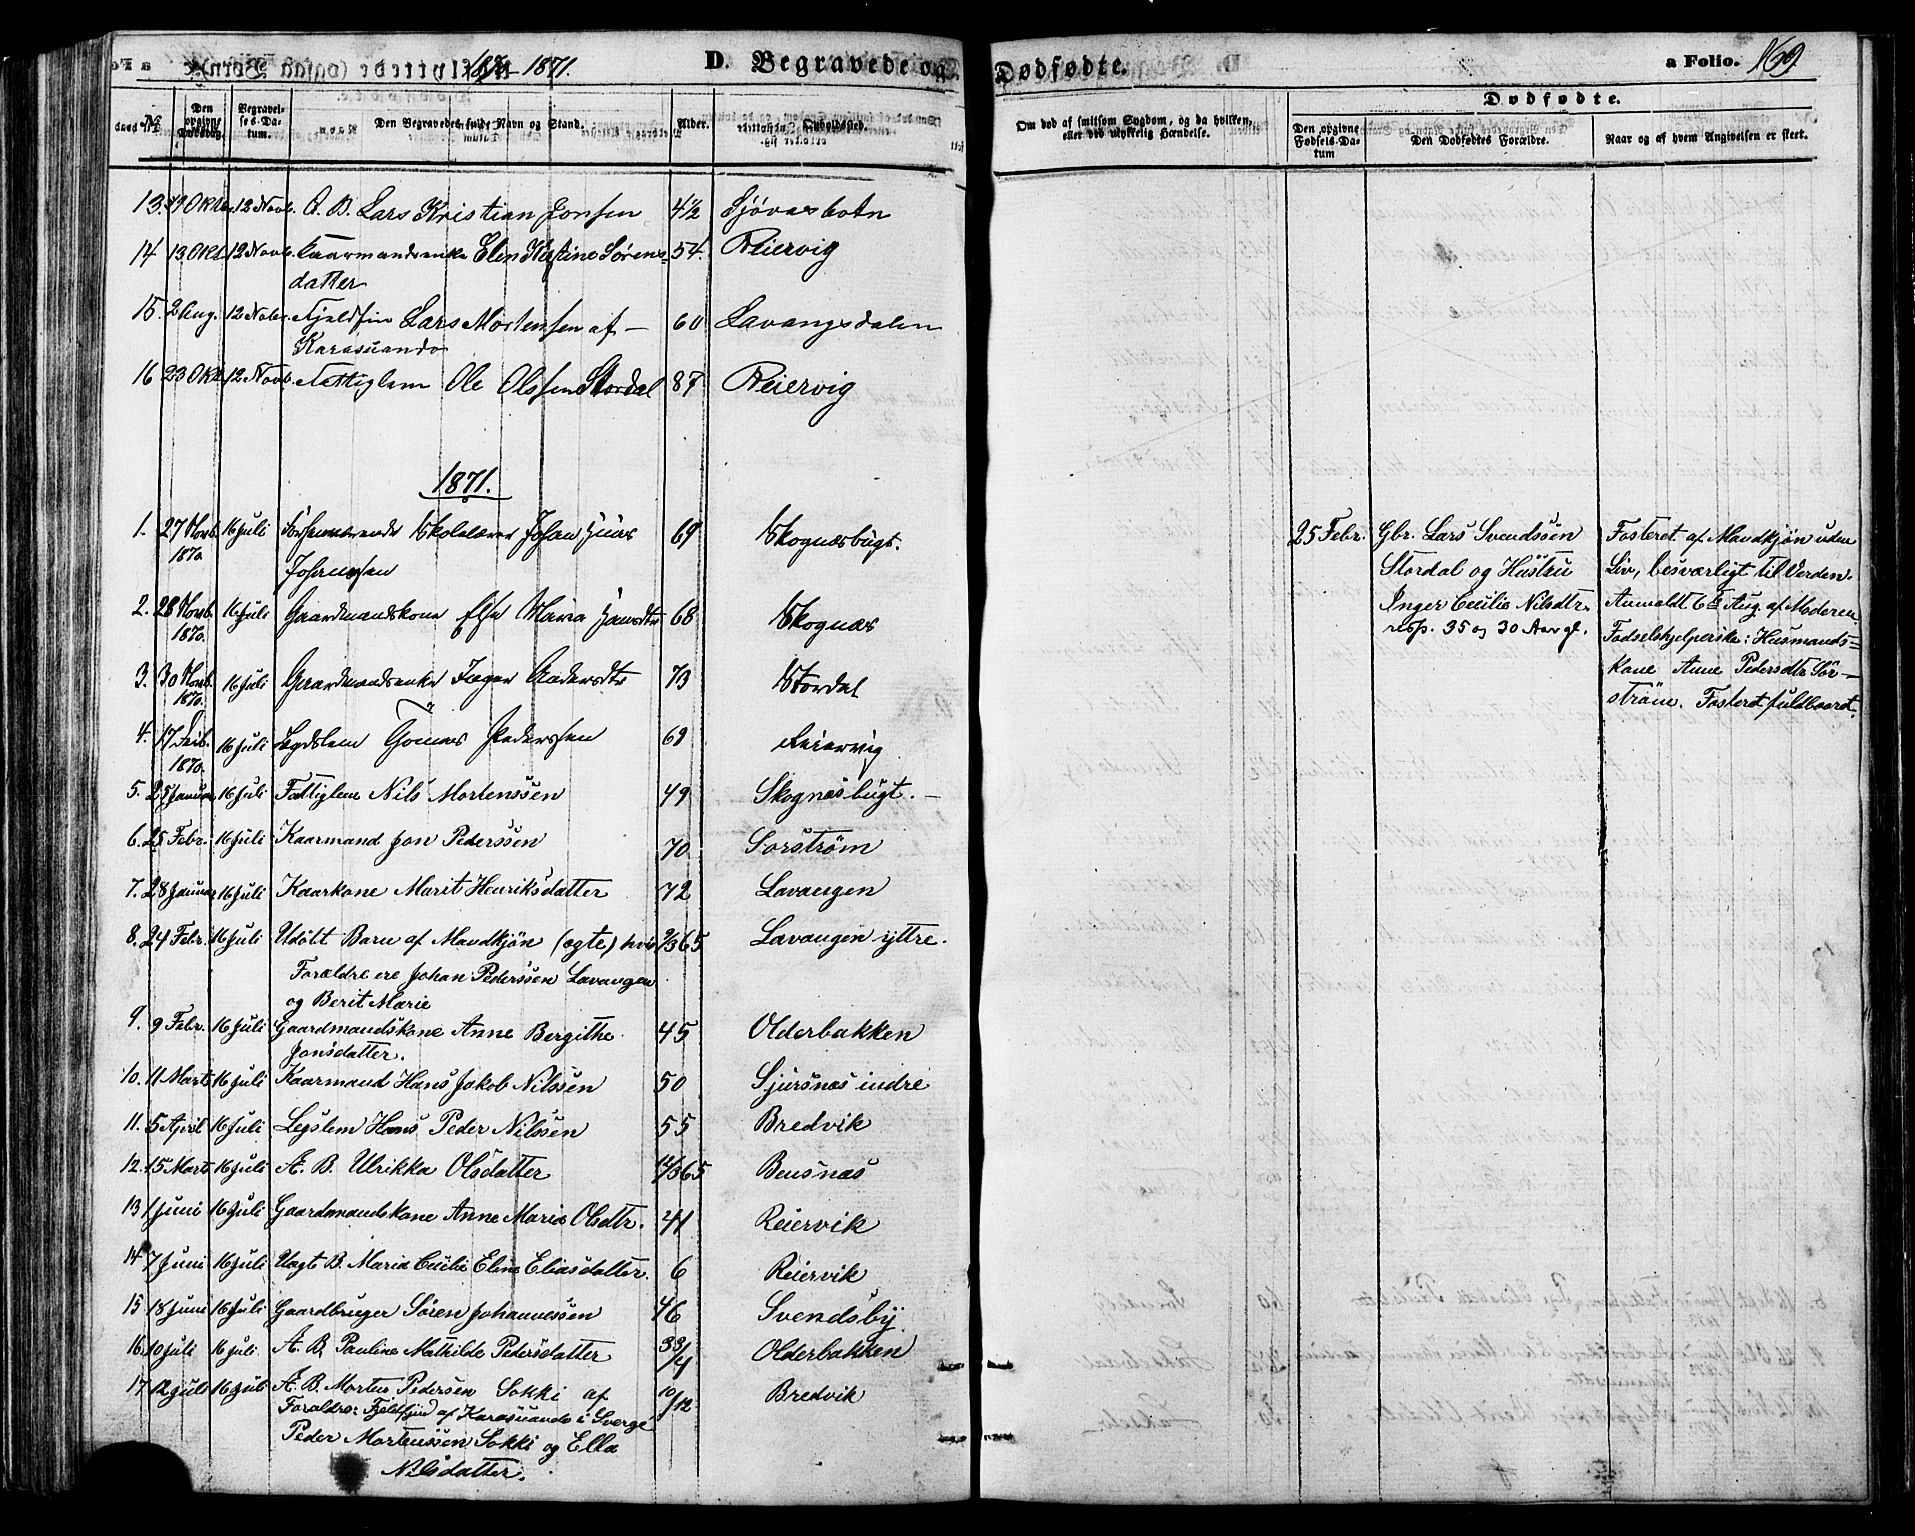 1871.
D. Begravede og Dødfødte.
a Folio. 169
Den opgivne Dødsdag.
Begravelses-Datum.
Den Begravedes fulde Navn og Stand.
Alder.
Opholdssted.
Om død af smitsom Sygdom, og da hvilken,
eller ved ulykkelig Hændelse.
Dødfødte.
Den opgivne Fødsels-Datum
Den Dødfødtes Forældre.
Naar og af hvem Angivelsen er skeet.
13. 29 Okt. 12 Novb. Æ. B. Lars Kristian Jonsen 4 1/2 Sjøvasbotn
14 13 Okt. 12 Novb. Kaarmandsenke Elen Kristine Sørens-
datter 54. Reiervig
15. 2 Aug. 12 Nobr. Fjeldfin Lars Mortensen af —
Karasuando 60 Lavangsdalen
16 23 Okt. 12 Novb. Fattiglem Ole Olssen Stordal 87 Reiervig
1871.
1. 27 Novb. 1870. 16 Juli Skolelærer Johan
Johannessen 69 Skognæsbugt.
2. 28 Novb. 1870. 16 Juli Gaardmandskone Else Maria Hansdtr 68 Skognæs
3. 30 Novb. 1870. 16 Juli Gaardmandsenke Inger Andersdtr 73 Stordal
4. 17 1870. 16 Juli Lægdslem Tomas Pederssen 69 Reiervig
5. 25 Januar 16 Juli Fattiglem Nils Mortenssen 49 Skognæsbugt. —
6. 25 Febr. 16 Juli Kaarmand Jon Pederssen 70 Sorstrøm
7. 28 Januar 16 Juli Kaarkone Marit Henriksdatter 72 Lavangen
8. 24 Febr. 16 Juli Udøbt Barn af Mandkjøn (ægte) hvis 2/365 Lavangen yttre.
Forældre ere Johan Pederssen Lavangen
og Berit Marie
9. 9 Febr. 16 Juli Gaardmandskone Anne Bergithe
Jonsdatter. 45 Olderbakken
10. 11 Marts 16 Juli Kaarmand Hans Jakob Nilssen 50 Sjursnæs indre
11. 5 April 16 Juli Legslem Hans Peder Nilssen 55 Bredvik
12. 15 Marts 16 Juli Æ. B. Ulrikka Olsdatter 12/365 Bensnæs
13 1 Juni 16 Juli Gaardmandskone Anne Maria Olsdtr. 41 Reiervik
14 7 Juni 16 Juli Uægt B. Maria Cecilie Eline Eliasdatter. 6 Reiervik
15 18 Juni 16 Juli Gaardbruger Søren Johannessen 46 Svendsby
16. 10 Juli 16 Juli. Æ. B. Pauline Mathilde Pedersdatter 3 3/4 Olderbakken
17. 12 Juli 16 Juli Æ. B. Mortus Pedersen Sokki af 10/12 Bredvik
Foraldre: Fjeldfind af Karasuando i Sverge
Peder Mortenssen Sokki og Ella
Nilsdatter.
25 Febr.
Gbr. Lars Svendssen
Stordal og Hustru
Inger Cecilie Nilsdtr.
resp. 35 og 30 Aar gl.
Fosteret af Mandkjøn uden
Liv, besværligt til Verden.
Anmeldt 6te Aug. af Moderen
Fødselshjelperske: Husmands-
kone Anne Pedersdtr Sør-
strøm. Fosteret fuldbaaret.